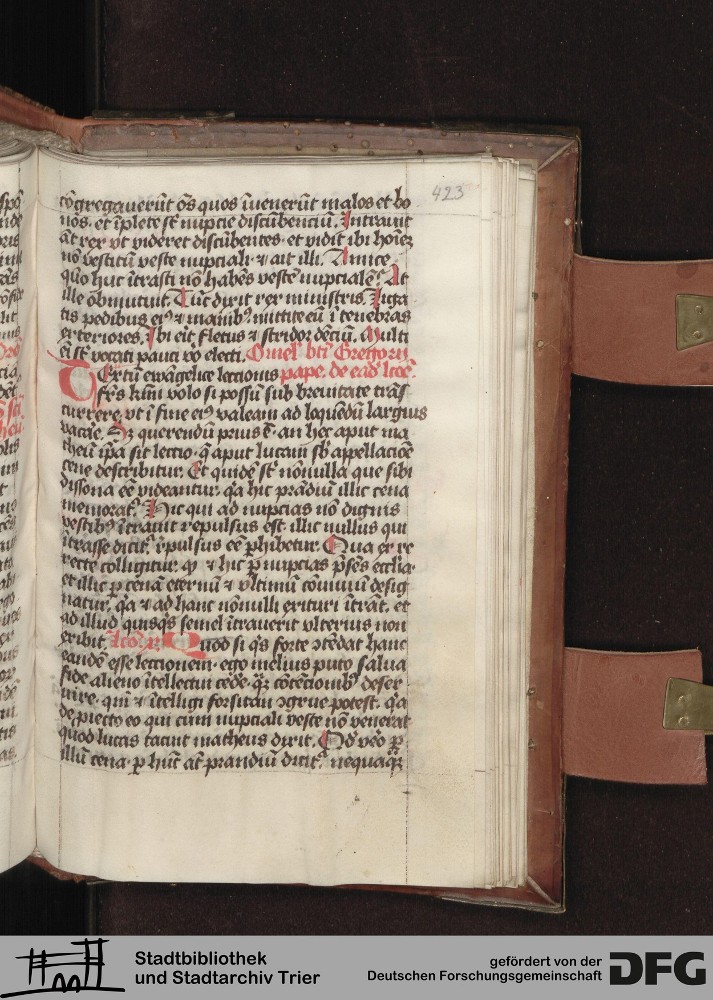 423
cōgregauerūt ōs quos īuenerūt malos et bo
nos. et īplete sūt nupcie discūbenciū. Intrauit
āt rex vt videret discūbentes. et vidit ibi hoīez
nō vestitū veste nupciali. et ait illi. Amice
quō huc ītrasti nō habēs vestē nupcialē. At
ille obmutuit. Tūc dixit rex ministris. liga
tis pedibus eiꝰ et manibꝰ. mittite eū ī tenebras
exteriores. Ibi erit fletus et stridor dēciū. Multi
eī sūt vocati pauci vō electi. Omel' bti Gregorii
TExtū ewāgelice lectionis pape. de eadē lectōe.
frēs kmi volo si possū sub breuitate trās
currere, vt ī fine eiꝰ valeam ad loquēdū largius
vacare. Sz querendū prius ē. an hec aput ma
theū ipa sit lectio. q̄ aput lucam sb' appellacōe
cene describitur. Et quidē sūt nōnulla que sibi
dissona eē videantur. q̄a hic prādiū illic cena
memorat'. Hic qui ad nupcias nō dignis
vestibꝰ ītrauit repulsus est. illic nullus qui
ītrasse dicit'. rpulsus eē phibetur. Qua ex re
recte colligitur. ꝙ et hic p nupcias pñs ecclīa.
et illic p cenā eternū et vltimū cōuiuiū desig
natur. q̄a et ad hanc nōnulli exituri ītrāt. et
ad illud quisqs semel ītrauerit vlterius non
exibit. Quod si qs forte ↄtēdat hanc
eandē esse lectionem. ego melius puto salua
fide alieno ītellectui cedē. q̄ cōtēcionibꝰ deser
uire. qm̄ et ītelligi forsitan ↄgrue potest. q̄a
de piecto eo qui cum nupciali veste nō venerat
quod lucas tacuit matheus dixit. Qd' vēo p
illū cena. p hūc āt prandiū dicit'. nequaq̄
Stadtbibliothek
und Stadtarchiv Trier
gefördert von der
Deutschen Forschungsgemeinschaft
DFG